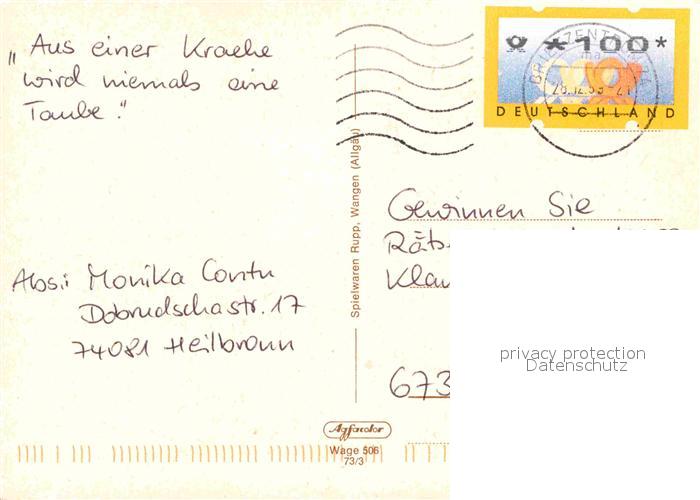 „Aus einer Kraehe
wird niemals eine
Taube."
Abs.: Monika Contu
Dobrudschastr. 17
74081 Heilbronn
Spielwaren Rupp, Wangen (Allgäu)
Agfacolor
Wage 506
73/3
*100*
DEUTSCHLAND
BRIEFZENTRUM
Gewinnen Sie
Räts
Klau
673
privacy protection
Datenschutz